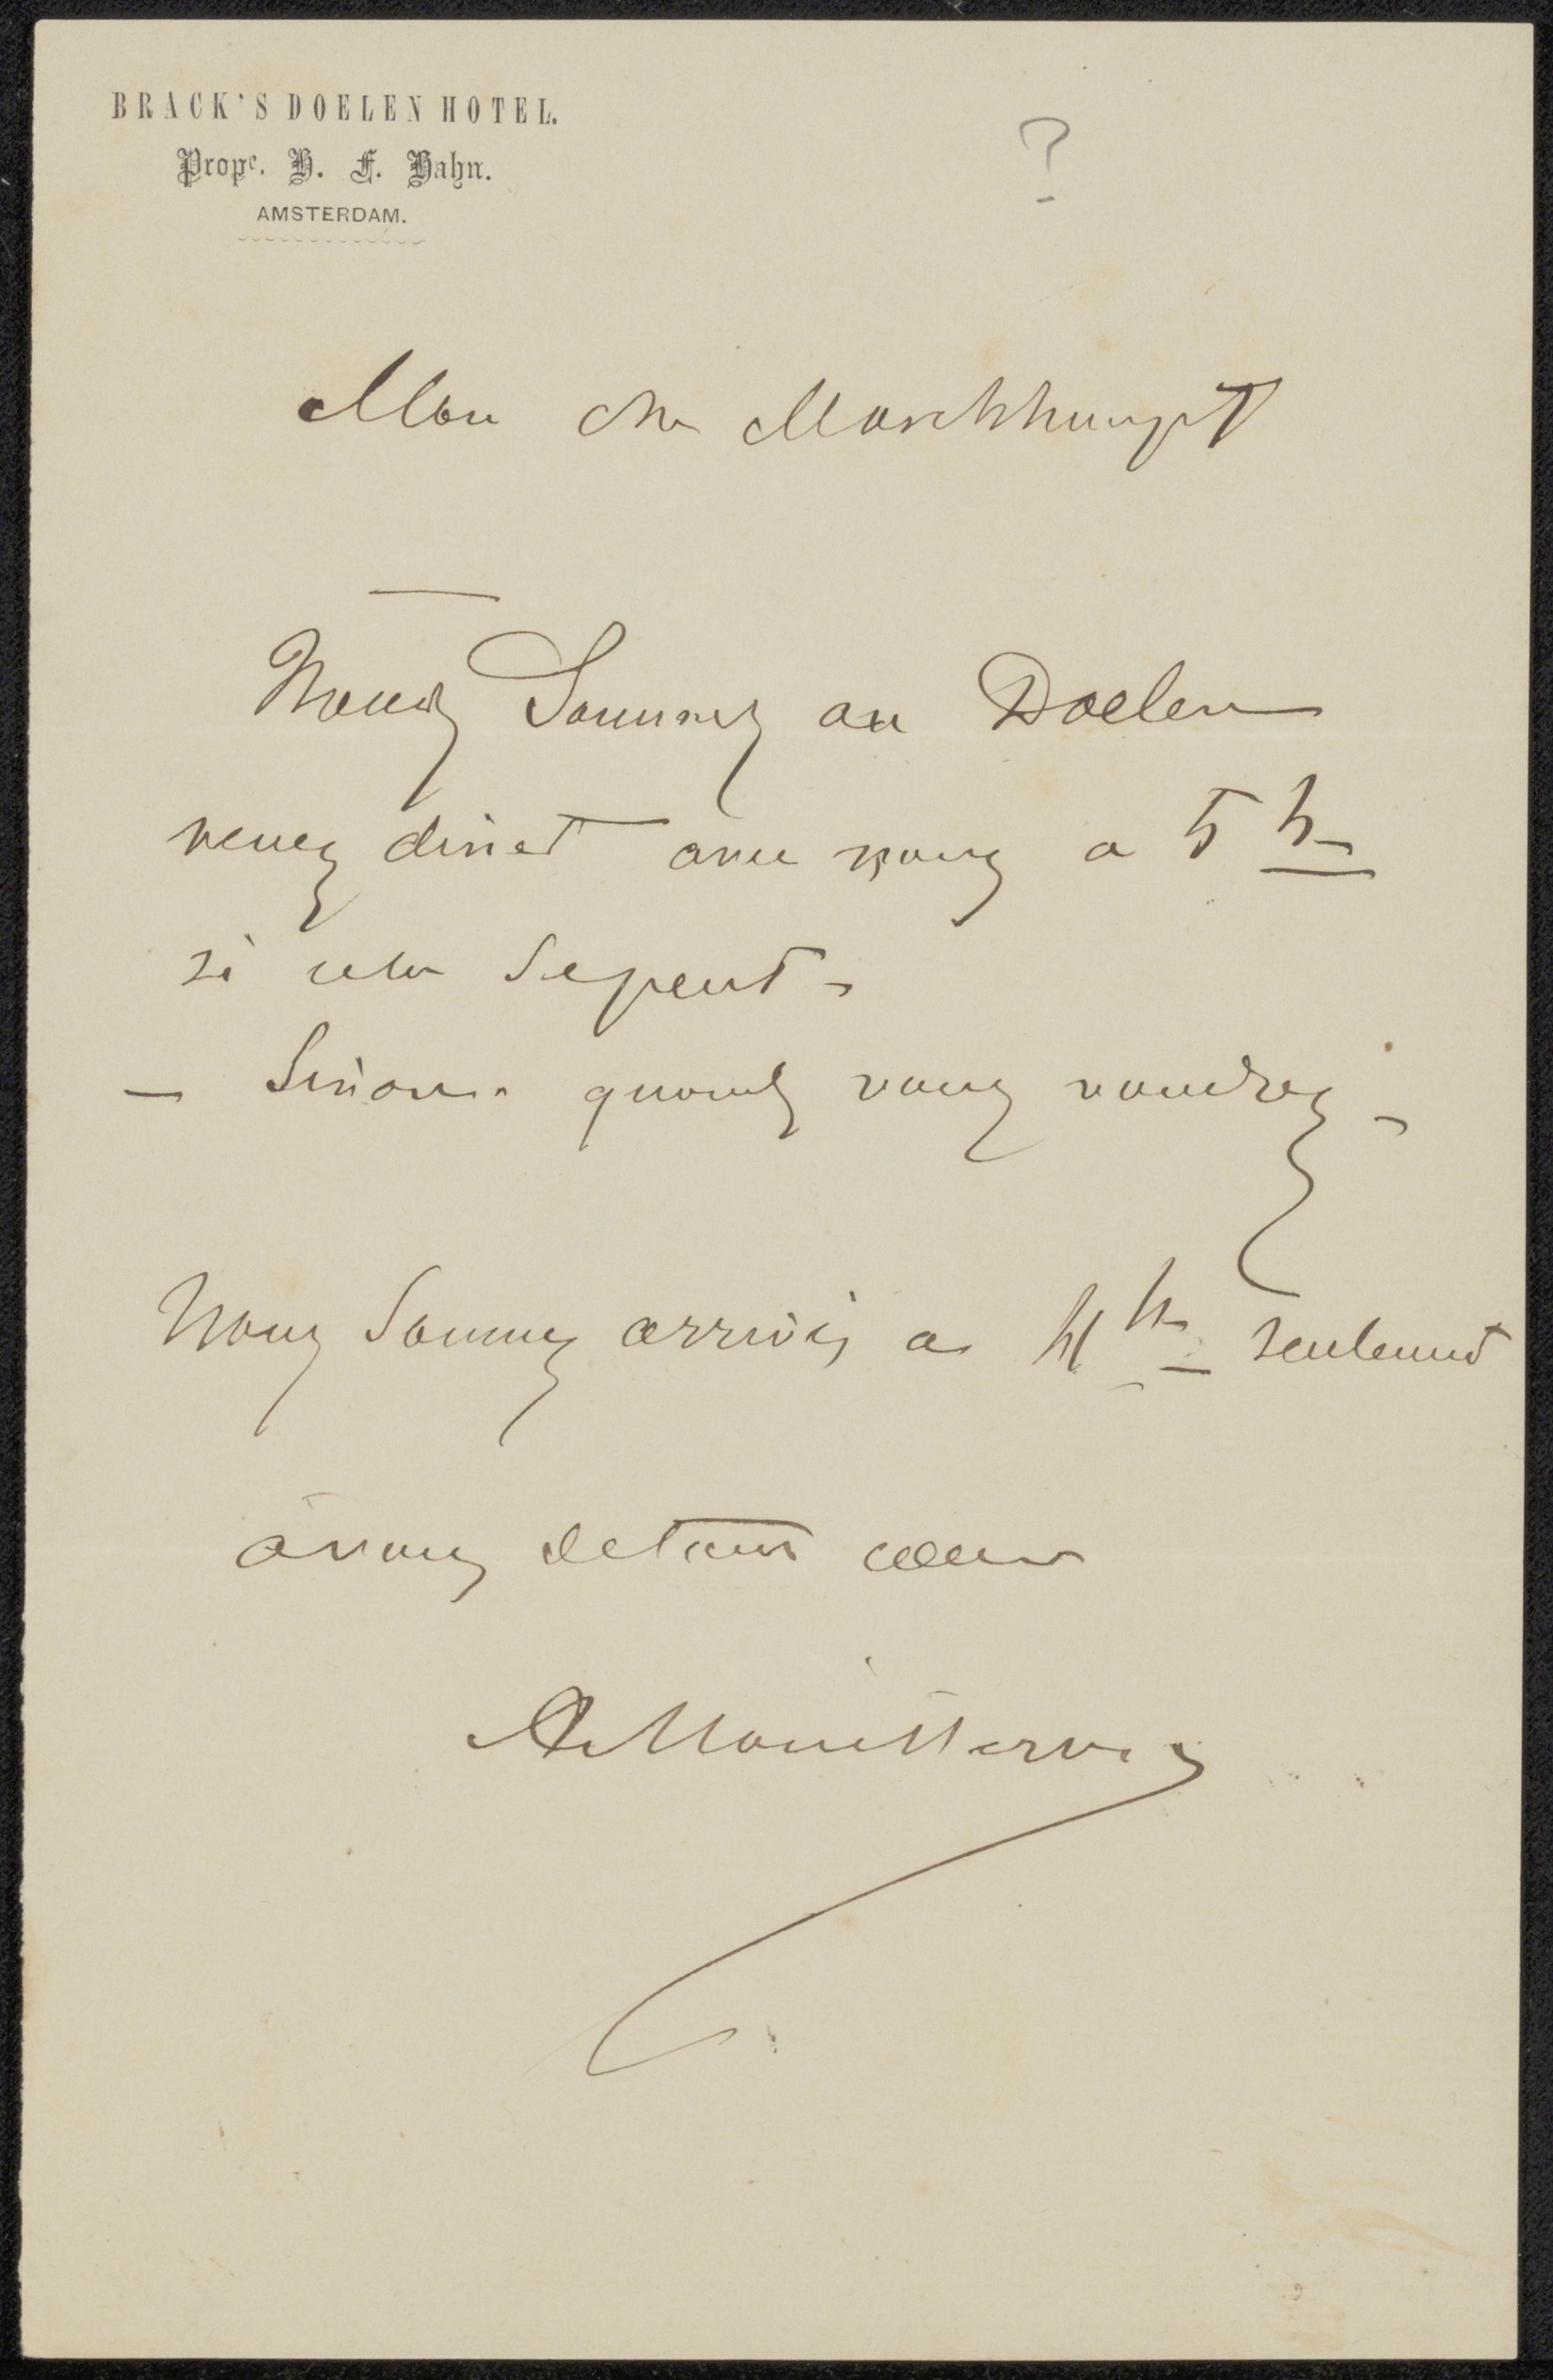 BRACK'S DOELEN HOTEL.
Prope. H. F. Hahn.
AMSTERDAM.
?
Mon cher
Nous Sommes au Doelen
venez diner avec nous a 5 h
si cela se peut -
- Sinon. quand vous voudrez -
Nous Sommes arrivés a 4 h seulement
à vous de tout cœur